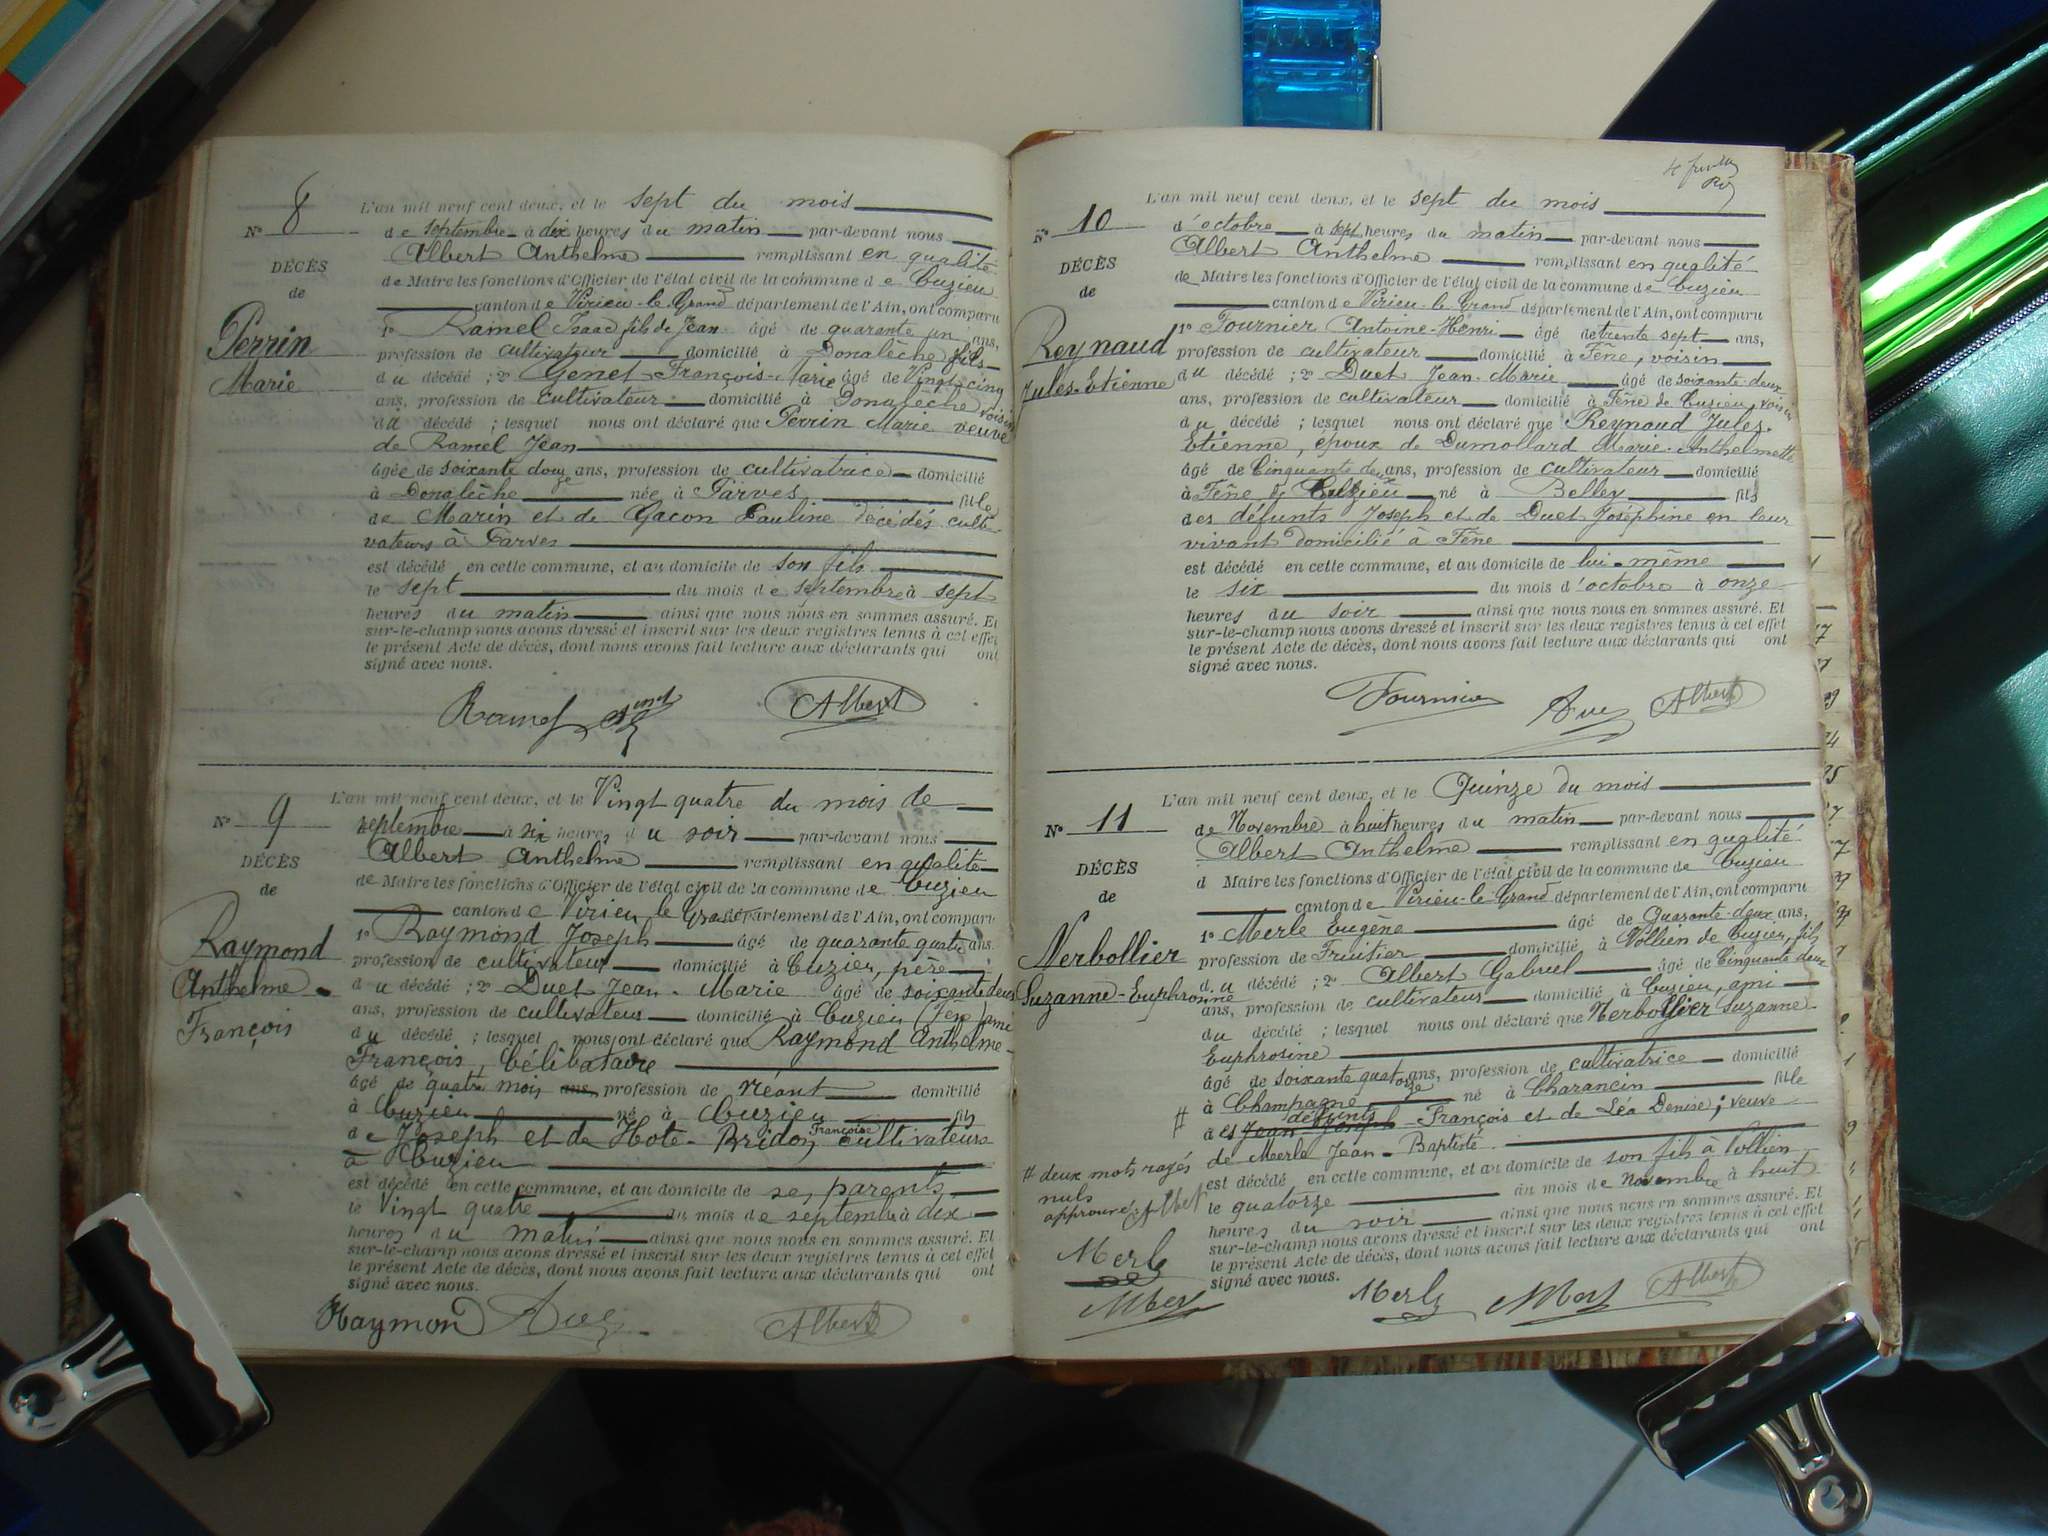 L'an mil neuf cent deux, et le sept du mois
N° 8
de septembre à dix heures du matin par-devant nous
Albert Anthelme remplissant en qualité
DÉCÈS
de Maire les fonctions d'Officier de l'état civil de la commune de Cuzieu
de
canton de Virieu-le-Grand département de l'Ain, ont comparu
Perrin
1° Ramel Isaac fils de Jean âgé de quarante un ans,
profession de cultivateur domicilié à Donalèche fils
Marie
du décédé ; 2° Genet François-Marie âgé de Vingt cinq
ans, profession de cultivateur domicilié à Donalèche voisin
du décédé ; lesquel nous ont déclaré que Perrin Marie veuve
de Ramel Jean
âgée de soixante douze ans, profession de cultivatrice domicilié
à Donalèche née à Parves fille
de Marin et de Gacon Pauline décédés culti-
vateurs à Parves
est décédé en cette commune, et au domicile de son fils
le sept du mois de septembre à sept
heures du matin ainsi que nous nous en sommes assuré. Et
sur-le-champ nous avons dressé et inscrit sur les deux registres tenus à cet effet
le présent Acte de décès, dont nous avons fait lecture aux déclarants qui ont
signé avec nous.
Ramel Albert
L'an mil neuf cent deux, et le Vingt quatre du mois de
N° 9
septembre à six heures du soir par-devant nous
Albert Anthelme remplissant en qualité
DÉCÈS
de Maire les fonctions d'Officier de l'état civil de la commune de Cuzieu
de
canton de Virieu le Grand département de l'Ain, ont comparu
Raymond
1° Raymond Joseph âgé de quarante quatre ans.
profession de cultivateur domicilié à Cuzieu, père
Anthelme
du décédé ; 2° Duet Jean-Marie âgé de soixante deux
ans, profession de cultivateur domicilié à Cuzieu (Fène) ami
François
du décédé ; lesquel nous ont déclaré que Raymond Anthelme
François, Célibataire
âgé de quatre mois ans profession de néant domicilié
à Cuzieu né à Cuzieu fils
de Joseph et de Hote-Bridon Françoise cultivateurs
à Cuzieu
est décédé en cette commune, et au domicile de ses parents
le Vingt quatre du mois de septembre à dix
heures du matin ainsi que nous nous en sommes assuré. Et
sur-le-champ nous avons dressé et inscrit sur les deux registres tenus à cet effet
le présent Acte de décès, dont nous avons fait lecture aux déclarants qui ont
signé avec nous.
Raymond Albert
L'an mil neuf cent deux, et le sept du mois
N° 10
d'octobre à sept heures du matin par-devant nous
Albert Anthelme remplissant en qualité
DÉCÈS
de Maire les fonctions d'Officier de l'état civil de la commune de Cuzieu
de
canton de Virieu-le-Grand département de l'Ain, ont comparu
Reynaud
1° Fournier Antoine-Henri âgé de trente sept ans,
profession de cultivateur domicilié à Fène, voisin
Jules-Etienne
du décédé ; 2° Duet Jean-Marie âgé de soixante-deux
ans, profession de cultivateur domicilié à Fène de Cuzieu, voisin
du décédé ; lesquel nous ont déclaré que Reynaud Jules-
Etienne, époux de Dumollard Marie-Anthelmette
âgé de Cinquante deux ans, profession de cultivateur domicilié
à Fène de Cuzieu né à Belley fils
des défunts Joseph et de Duet Joséphine en leur
vivant domicilié à Fène
est décédé en cette commune, et au domicile de lui-même
le six du mois d'octobre à onze
heures du soir ainsi que nous nous en sommes assuré. Et
sur-le-champ nous avons dressé et inscrit sur les deux registres tenus à cet effet
le présent Acte de décès, dont nous avons fait lecture aux déclarants qui ont
signé avec nous.
Fournier Albert
L'an mil neuf cent deux, et le Quinze du mois
N° 11
de Novembre à huit heures du matin par-devant nous
Albert Anthelme remplissant en qualité
DÉCÈS
d Maire les fonctions d'Officier de l'état civil de la commune de Cuzieu
de
canton de Virieu-le-Grand département de l'Ain, ont comparu
Nerbollier
1° Merle Eugène âgé de Quarante-deux ans,
profession de Fruitier domicilié à Vollien de Cuzieu, fils
Suzanne-Euphronne
du décédé ; 2° Albert Gabriel âgé de Cinquante deux
ans, profession de cultivateur domicilié à Cuzieu, ami
du décédé ; lesquel nous ont déclaré que Nerbollier Suzanne
Euphrosine
âgé de soixante quatorze ans, profession de cultivatrice domicilié
à Champagne né à Charancin fille
# des défunts Jean Joseph François et de Léa Denise ; veuve
de Merle Jean-Baptiste
# deux mots rayés
nuls
approuvé Albert
est décédé en cette commune, et au domicile de son fils à Vollien
le quatorze du mois de Novembre à huit
heures du soir ainsi que nous nous en sommes assuré. Et
sur-le-champ nous avons dressé et inscrit sur les deux registres tenus à cet effet
le présent Acte de décès, dont nous avons fait lecture aux déclarants qui ont
signé avec nous.
Merle
Albert
Merle Albert Albert